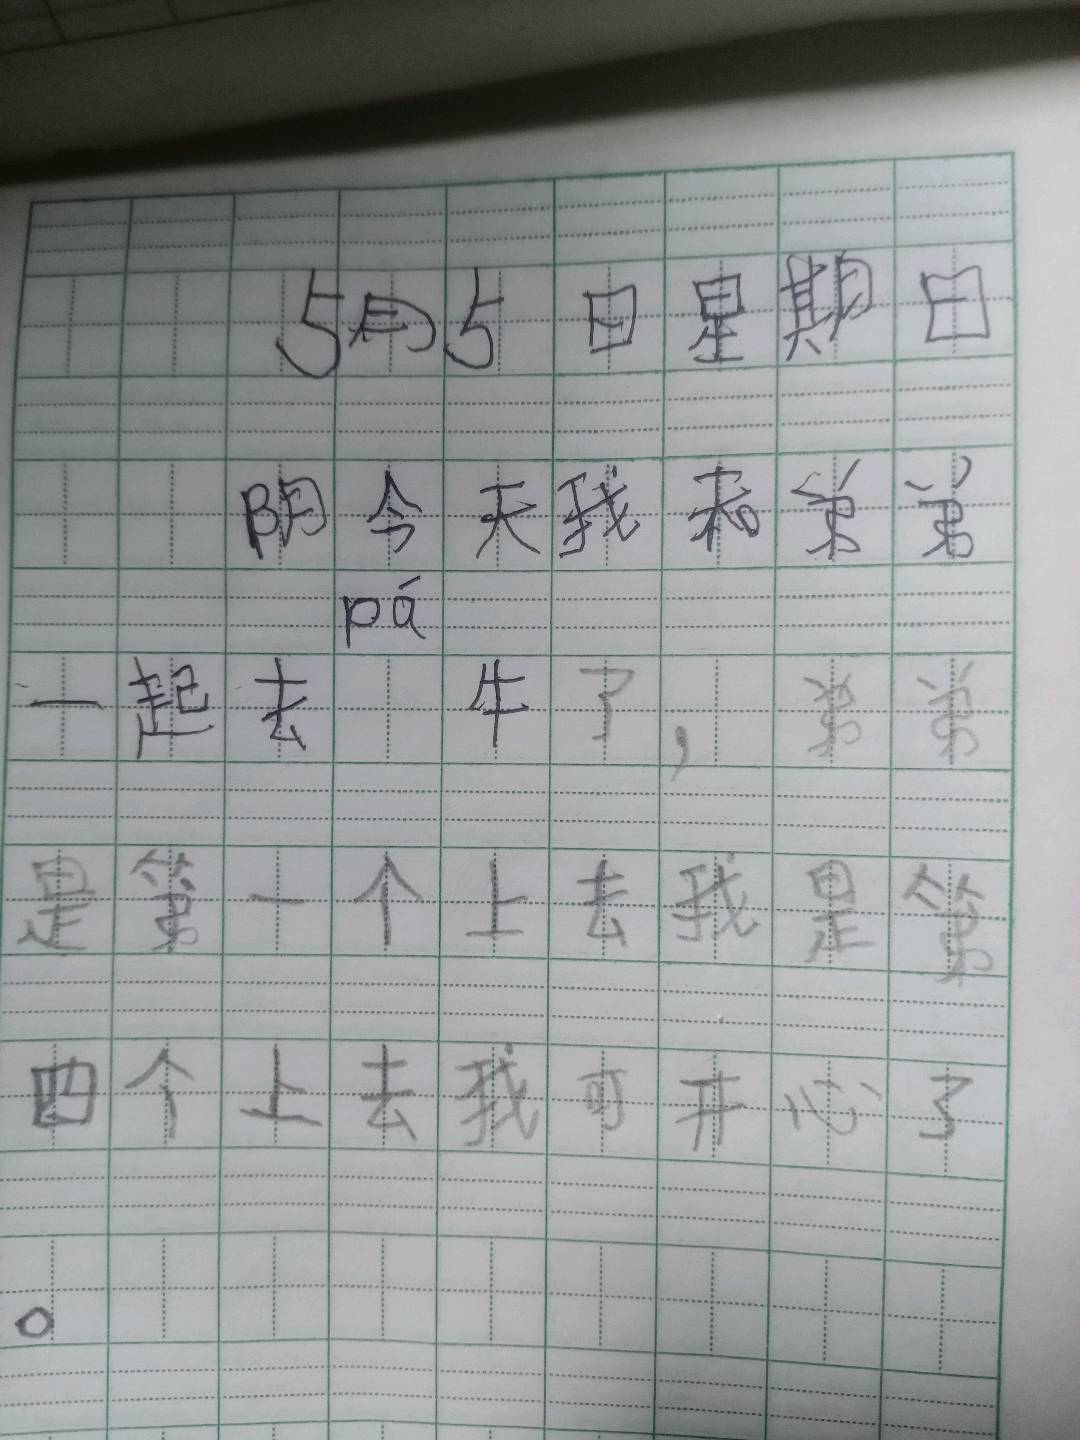 5月5日星期日
阴今天我和弟弟
pá
一起去 牛了,弟弟
是第一个上去我是第
四个上去我可开心了
。